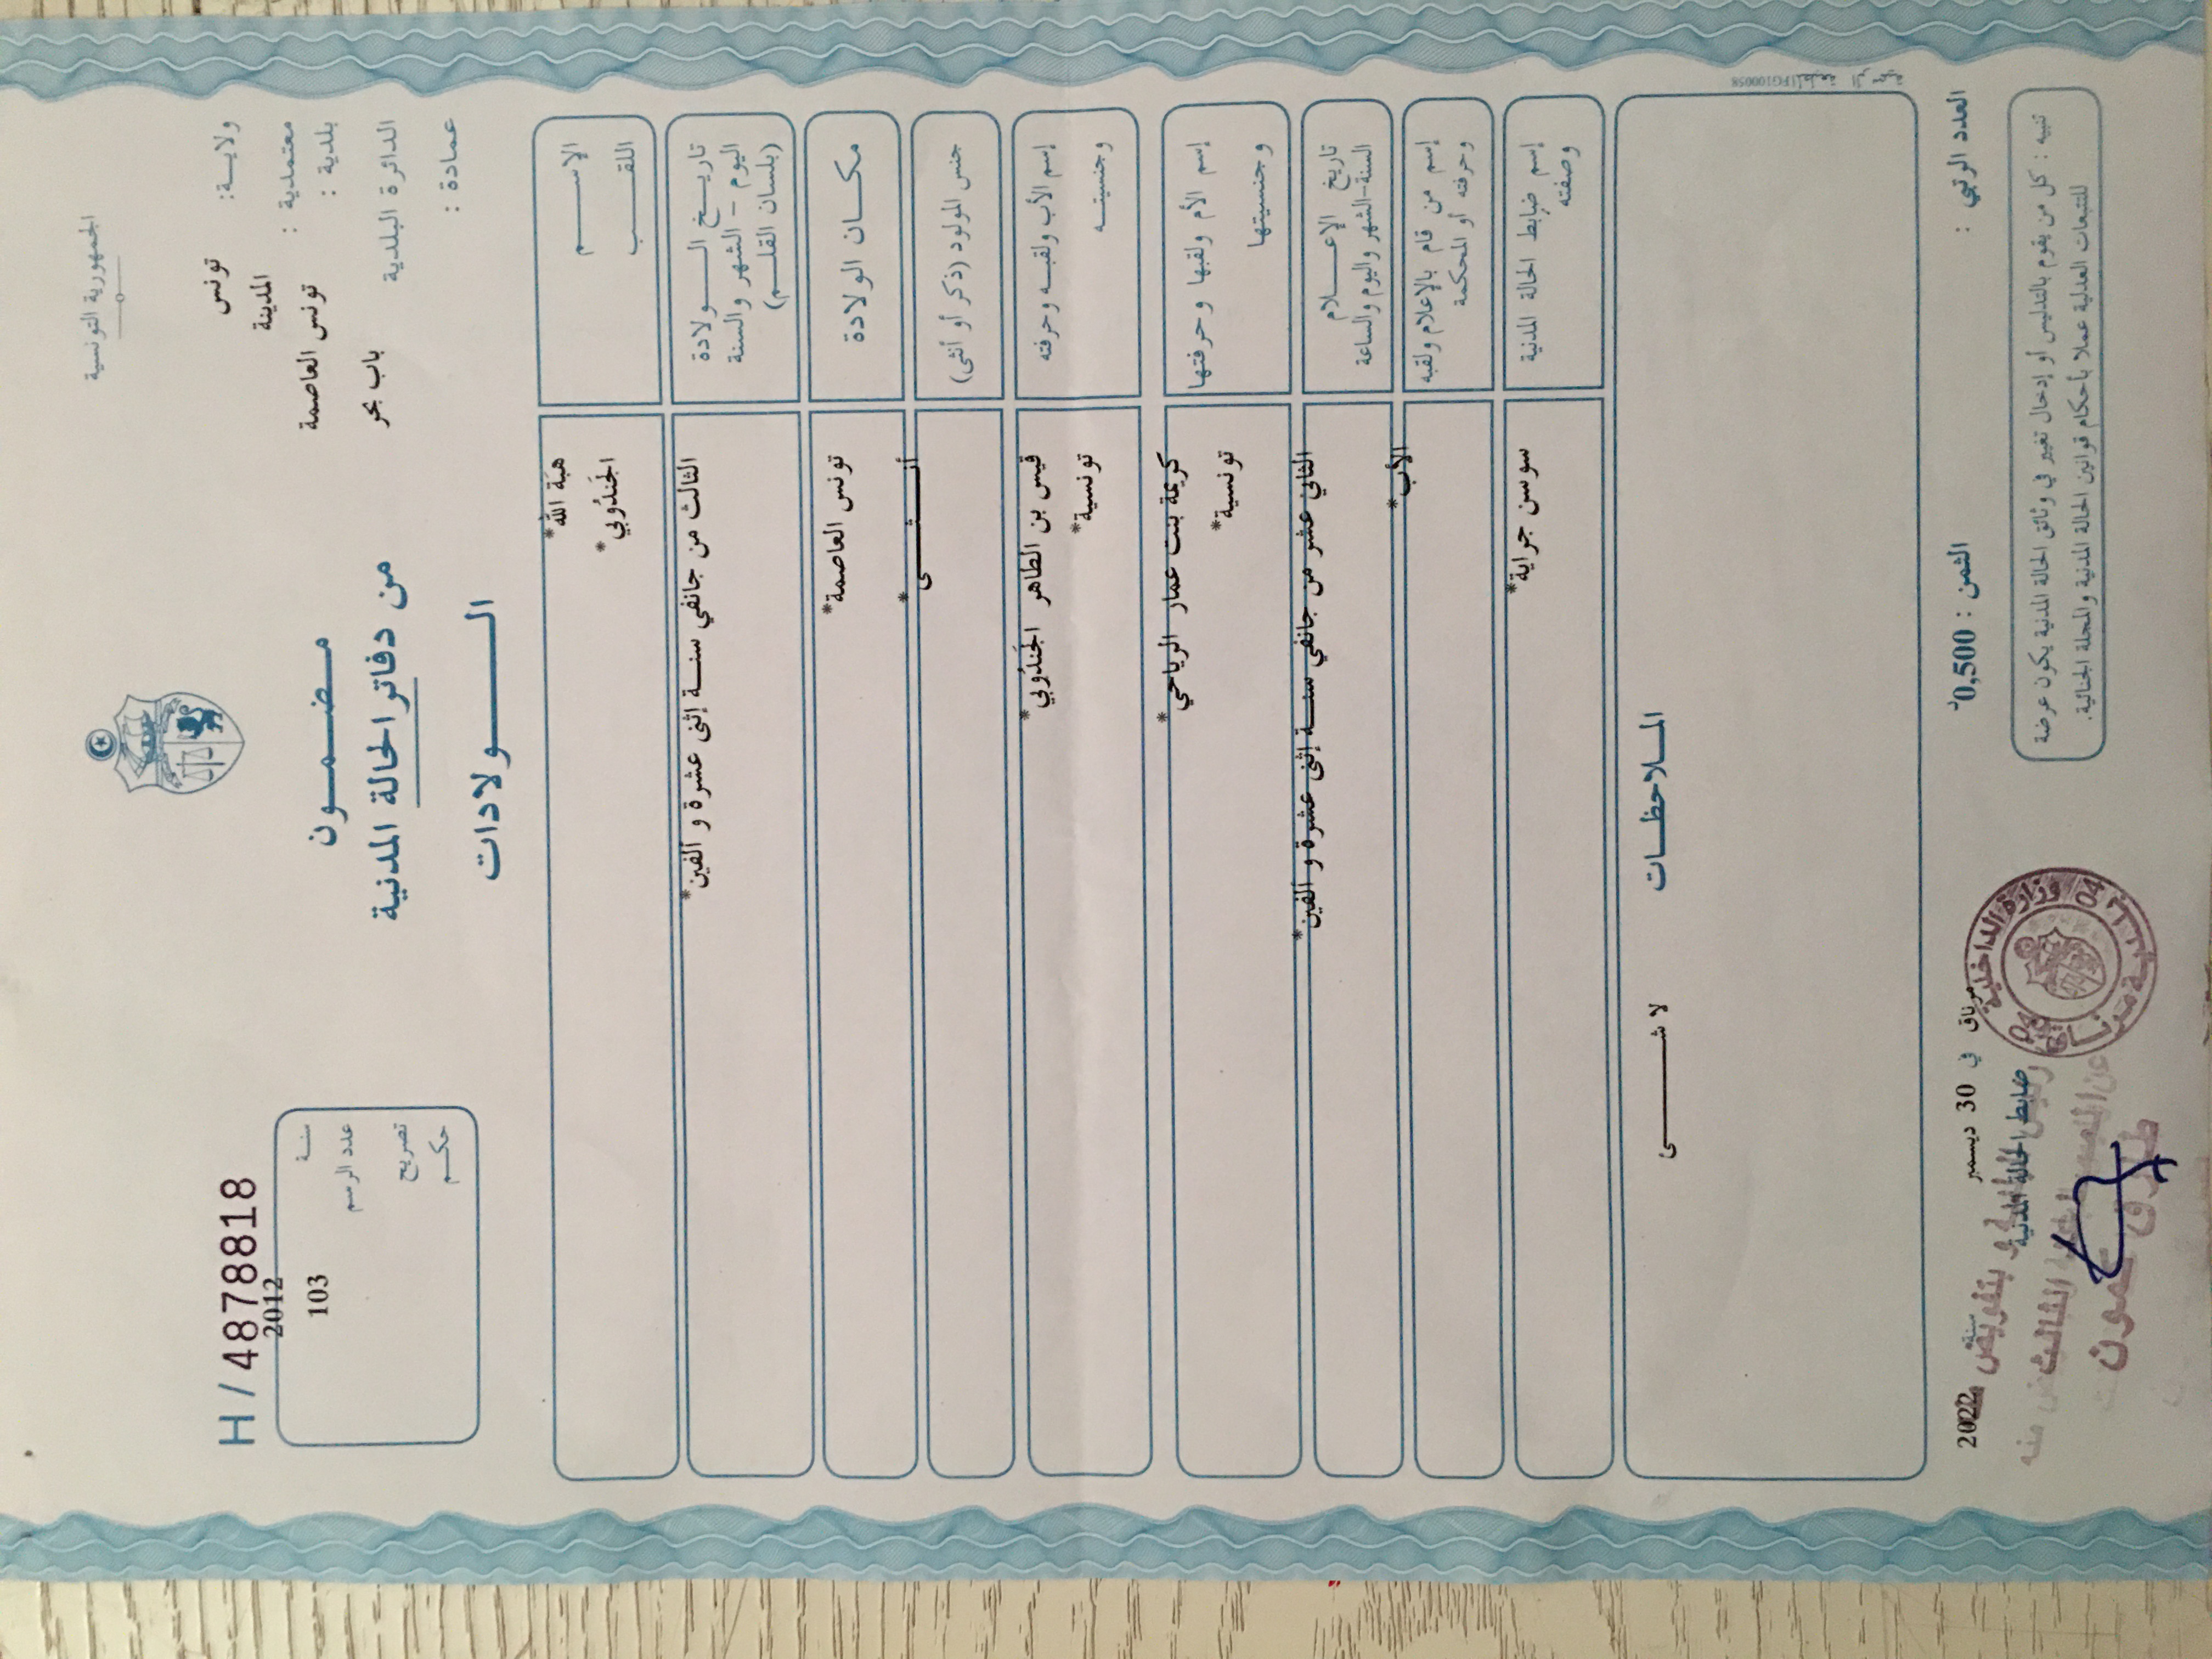 الجمهورية التونسية
ولاية: تونس
معتمدية : المدينة
بلدية : تونس العاصمة
الدائرة البلدية باب بحر
عمادة :
مضمون
من دفاتر الحالة المدنية
الولادات
H/48788818
سنة 2012
عدد الرسم 103
تصريح
حكم
الإسم هبَة الله*
اللقب الجَندُوبي*
تاريخ الولادة
اليوم - الشهر والسنة
(بلسان القلم)
الثالث من جانفي سنة إثنى عشرة و ألفين*
مكان الولادة تونس العاصمة*
جنس المولود (ذكر أو أنثى) أنثى*
إسم الأب ولقبه وحرفته قيس بن الطاهر الجَندُوبي*
وجنسيته تونسية*
إسم الأم ولقبها وحرفتها كريمة بنت عمار الرياحي*
وجنسيتها تونسية*
تاريخ الإعلام
السنة-الشهر واليوم والساعة
الثاني عشر من جانفي سنة إثنى عشرة و ألفين*
إسم من قام بالإعلام ولقبه
وحرفته أو المحكمة
الأب*
إسم ضابط الحالة المدنية
وصفته
سوسن جراية*
الملاحظات
لا شى
المطبعة الرسمية FG100058
العدد الرتبي :
الثمن : 0,500د
مرناق في 30 ديسمبر سنة 2022
ضابط الحالة المدنية
وزارة الداخلية
04
بلدية مرناق
تنبيه : كل من يقوم بالتدليس أو إدخال تغيير في وثائق الحالة المدنية يكون عرضة
للتتبعات العدلية عملا بأحكام قوانين الحالة المدنية والمجلة الجنائية.